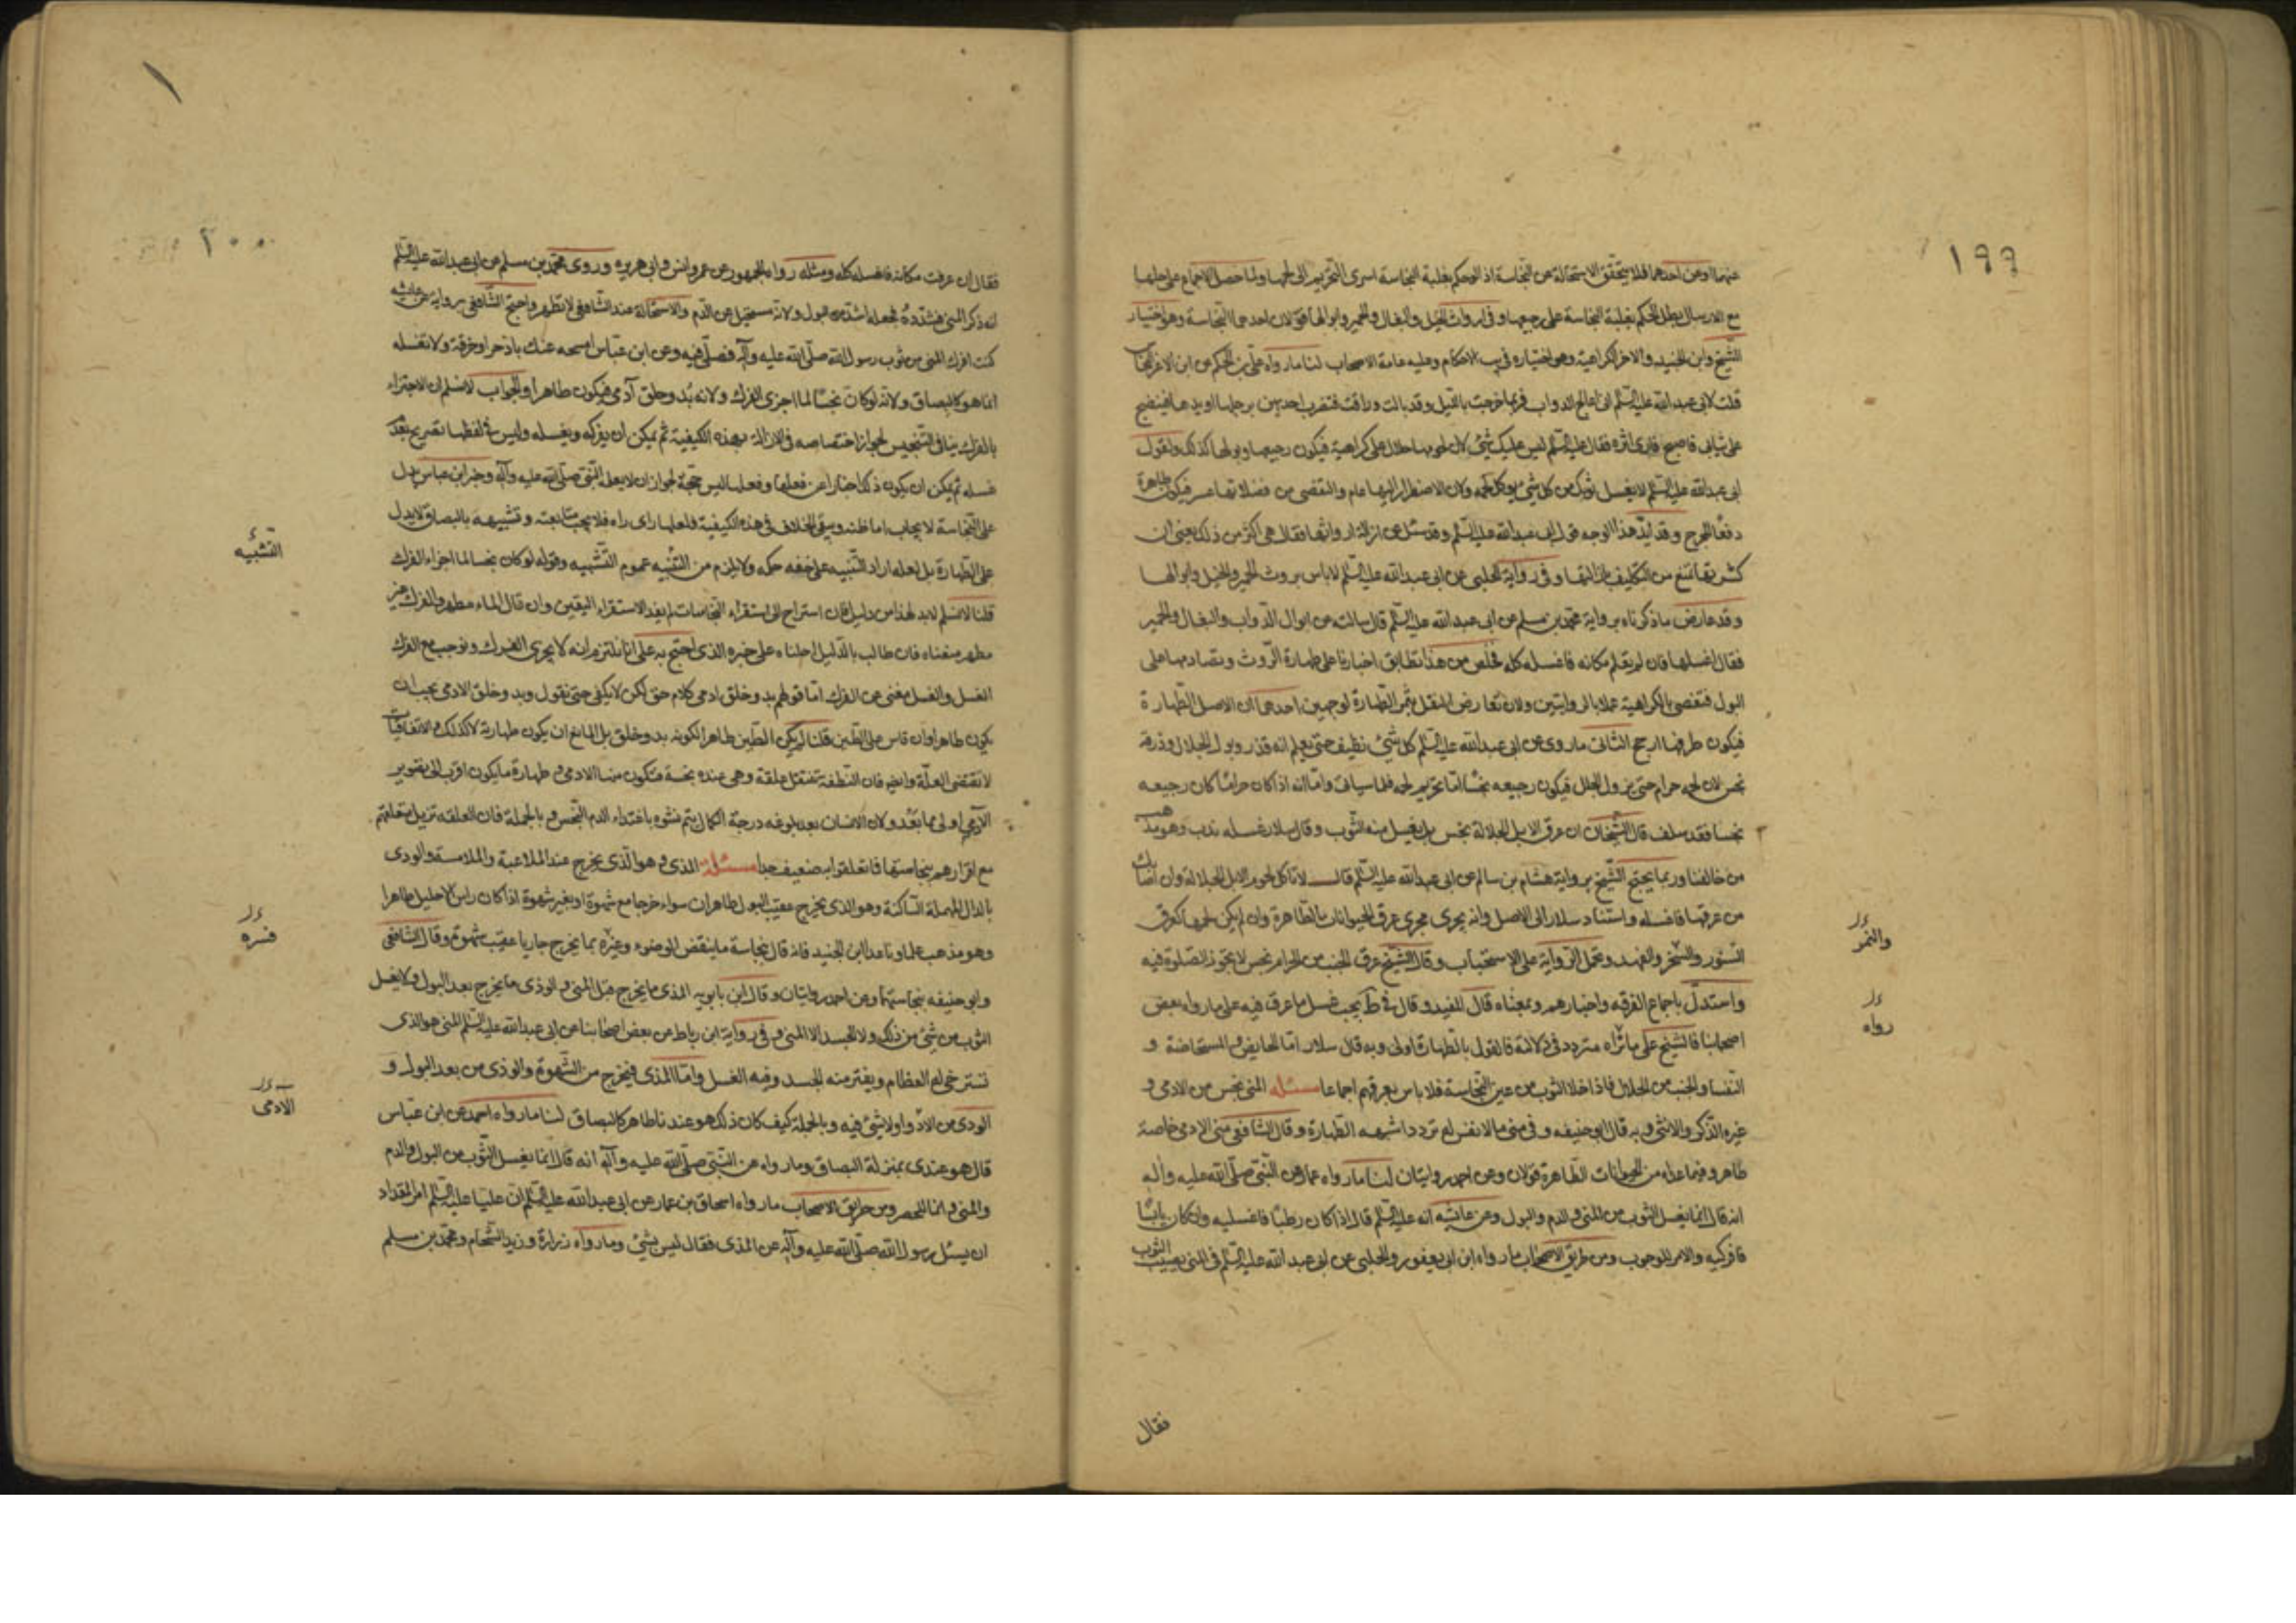 ١٩٩
عنهما او عن احدهما فلا يتحقق الاستحالة عن النجاسة اذ لو حكم بغلبة النجاسة لسرى التحريم الى لحمها ولما حصل الاجماع على حلها
مع الارسال بطل الحكم بغلبة النجاسة على رجيعها وفي ارواث الخيل والبغال والحمير وابوالها قولان احدهما النجاسة وهو اختيار
الشيخ وابن الجنيد والاخر الكراهية وهو اختياره في الاحكام وعليه عامة الاصحاب لنا ما رواه علي بن الحكم عن ابن الاغر النخاس
قلت لابي عبد الله عليه السلم اني اعالج الدواب فربما خرجت بالليل وقد بالت وراثت فتضرب احديهن برجلها او يدها فينضح
على ثيابي فاصبح فارى اثره فقال عليه السلم ليس عليك شيء لان لحومها حلال على كراهية فيكون رجيعها وبولها كذلك ولقول
ابي عبد الله عليه السلم لا يغسل ثوبك من كل شيء يؤكل لحمه ولان الاضطرار اليها عام والتقصي من فضلاتها عسر فيكون طاهرة
دفعا للحرج وقد ايد هذا الوجه قول ابي عبد الله عليه السلم وقد سئل عن ازالة ارواثها فقال هي اكثر من ذلك يعني ان
كثرتها تمنع من التكليف بازالتها وفي رواية الحلبي عن ابي عبد الله عليه السلم لا باس بروث الحمير والخيل وابوالها
وقد عارض ما ذكرناه برواية محمد بن مسلم عن ابي عبد الله عليه السلم قال سالته عن ابوال الدواب والبغال والحمير
فقال اغسلها فان لم تعلم مكانه فاغسله كله فخلص من هذا تطابق اخبارنا على طهارة الروث وتصادمها على
البول فتقضى بالكراهية عملا بالروايتين ولان تعارض النقل يثمر الطهارة لوجهين احدهما ان الاصل الطهارة
فيكون طرفها ارجح الثاني ما روى عن ابي عبد الله عليه السلم كل شيء نظيف حتى يعلم انه قذر وبول الجلال وذرقه
نجس لان لحمه حرام حتى يزول الجلل فيكون رجيعه نجسا اما تحريم لحمه فلما سياتي واما انه اذا كان حراما كان رجيعه
نجسا فقد سلف قال الشيخان ان عرق الابل الجلالة نجس بل يغسل منه الثوب وقال سلار غسله ندب وهو مذهب
من خالفنا وربما يحتج الشيخ برواية هشام بن سالم عن ابي عبد الله عليه السلم قال لا تاكل لحوم الابل الجلالة وان اصابك
من عرقها فاغسله واستناد سلار الى الاصل وانه يجرى مجرى عرق الحيوانات الطاهرة وان لم يكن لحمها كعرق
السنور والنمر والفهد وتحمل الرواية على الاستحباب وقال الشيخ عرق الجنب من الحرام نجس لا تجوز الصلوة فيه
والنمر
واستدل باجماع الفرقة واخبارهم وبمعناه قال المفيد وقال في ط يجب غسل ما عرق فيه على ما رواه بعض
اصحابنا فالشيخ على ما تراه متردد في دلالته فالقول بالطهارة اولى وبه قال سلار اما الحايض والمستحاضة و
رواه
النفسا والجنب من الحلال فاذا خلا الثوب من عين النجاسة فلا باس بعرقهم اجماعا مسئله المني نجس من الادمي و
غيره الذكر والانثى وبه قال ابو حنيفه وفي مني ما لا نفس له تردد اشبهه الطهارة وقال الشافعي مني الادمي خاصة
طاهر وفيما عداه من الحيوانات الطاهرة قولان وعن احمد روايتان لنا ما رواه عمار عن النبي صلى الله عليه واله
انه قال انما يغسل الثوب من المني والدم والبول وعن عايشه انه عليه السلم قال اذا كان رطبا فاغسليه وان كان يابسا
فافركيه والامر للوجوب ومن طريق الاصحاب ما رواه ابن ابي يعفور والحلبي عن ابي عبد الله عليه السلم في المني يصيب الثوب
فقال
٢٠٠
فقال ان عرفت مكانه فاغسله كله ومثله رواه الجمهور عن عمر وانس وابي هريره وروى محمد بن مسلم عن ابي عبد الله عليه السلم
انه ذكر المني فشدده فجعله اشد من البول ولانه مستحيل عن الدم والاستحالة عند الشافعي لا تطهر واحتج الشافعي برواية عن عايشه
كنت افرك المني من ثوب رسول الله صلى الله عليه وآله فصلى فيه وعن ابن عباس امسحه عنك باذخر او خرقة ولا تغسله
انما هو كالبصاق ولانه لو كان نجسا لما اجزى الفرك ولانه بدو خلق آدمي فيكون طاهرا والجواب لا نسلم ان الاجتزاء
بالفرك ينافي التنجيس لجواز اختصاصه في الازالة بهذه الكيفية ثم يمكن ان يفركه ويغسله وليس في لفظها تصريح بعدم
غسله ثم يمكن ان يكون ذلك اخبارا عن فعلها وفعلها ليس حجة لجواز ان لا يعلمه النبي صلى الله عليه وآله وخبر ابن عباس يدل
على النجاسة لايجاب اماطته ويبقى الخلاف في هذه الكيفية فلعلها راى راه فلا يجب متابعته وتشبيهه بالبصاق لا يدل
على الطهارة بل لعله اراد التشبيه على خفه حكمه ولا يلزم من التشبيه عموم التشبيه وقوله لو كان نجسا لما اجزاء الفرك
التشبيه
قلنا لا نسلم لا بد لهذا من دليل فان استراح الى استقراء النجاسات لم يفد الاستقراء اليقين وان قال الماء مطهر والفرك غير
مطهر منعناه فان طالب بالدليل احلناه على خبره الذي احتج به على انا نلتزم انه لا يجزي الفرك ونوجب مع الفرك
الغسل والغسل مغنى عن الفرك اما قولهم بدو خلق ادمي كلام حق لكن لا يكفي حتى نقول وبدو خلق الادمي يجب ان
يكون طاهرا وان قاس على الطين قلنا لم يكن الطين طاهرا لكونه بدو خلق بل المانع ان يكون طهارته لا كذلك والاتفاقيات
لا تقتضى العلة وايضا فان النطفة تنتقل علقة وهي عنده نجسة فتكون منها الادمي و طهارة ما يكون اقرب الى تصوير
الآدمي اولى مما بعد ولان الانسان بعد بلوغه درجة الكمال يتم نشوه باغتذاء الدم النجس وبالجملة فان العلقه تزيل متعلقهم
مع اقرارهم بنجاستها فما تعلقوا به ضعيف جدا مسئله المذي وهو الذي يخرج عند الملاعبة والملامسة والودى
بالدال المهملة الساكنة وهو الذي يخرج عقيب البول طاهران سواء خرجا مع شهوة او بغير شهوة اذا كان راس الاحليل طاهرا
وهو مذهب علماونا عدا ابن الجنيد فانه قال بنجاسة ما ينقض الوضوء وغيره بما يخرج جاريا عقيب شهوة وقال الشافعي
وابو حنيفه بنجاستهما وعن احمد روايتان وقال ابن بابويه المذي ما يخرج قبل المني والوذى ما يخرج بعد البول ولا يغسل
الثوب من شيء من ذلك ولا الجسد الا المني وفي رواية ابن رباط عن بعض اصحابنا عن ابي عبد الله عليه السلم المني هو الذي
تسترخي له العظام ويفتر منه الجسد وفيه الغسل واما المذي فيخرج من الشهوة والوذى من بعد البول و
الودى من الادواء ولا شيء فيه وبالجملة كيف كان ذلك هو عندنا طاهر كالبصاق لنا ما رواه احمد عن ابن عباس
الادمي
قال هو عندى بمنزلة البصاق وما رواه عن النبي صلى الله عليه وآله انه قال انما يغسل الثوب من البول والدم
والمني وانما للحصر ومن طريق الاصحاب ما رواه اسحاق بن عمار عن ابي عبد الله عليه السلم ان عليا عليه السلم امر المقداد
ان يسئل رسول الله صلى الله عليه وآله عن المذى فقال ليس بشيء وما رواه زرارة وزيد الشحام ومحمد بن مسلم